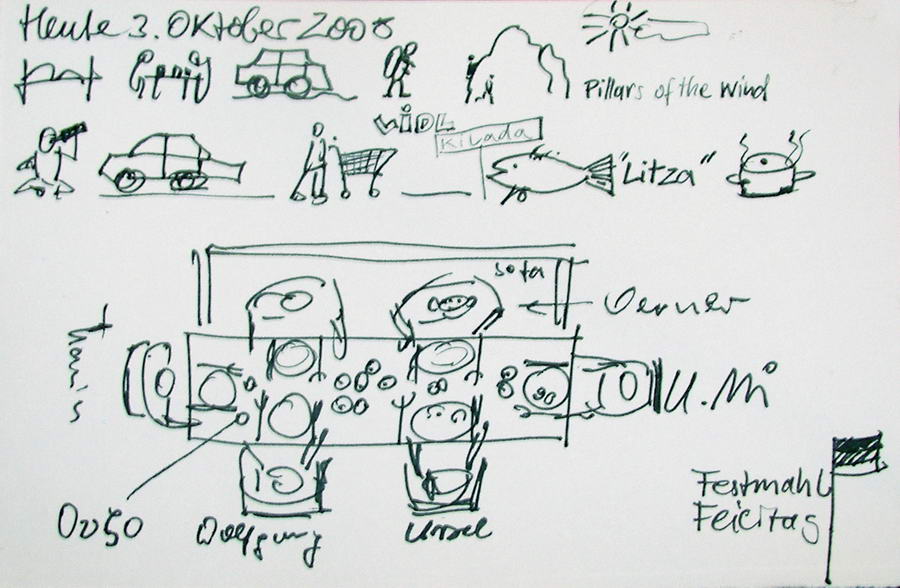 Heute 3. Oktober 2008
Pillars of the wind
LIDL
Kilada
"Litza"
sofa
Werner
U. Mi
Ouzo
Wolfgang
Ursel
Festmahl
Feiertag